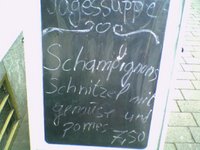 Tagessuppe
Schampignons
Schnitzel mit
gemüse und
pomes 7,50